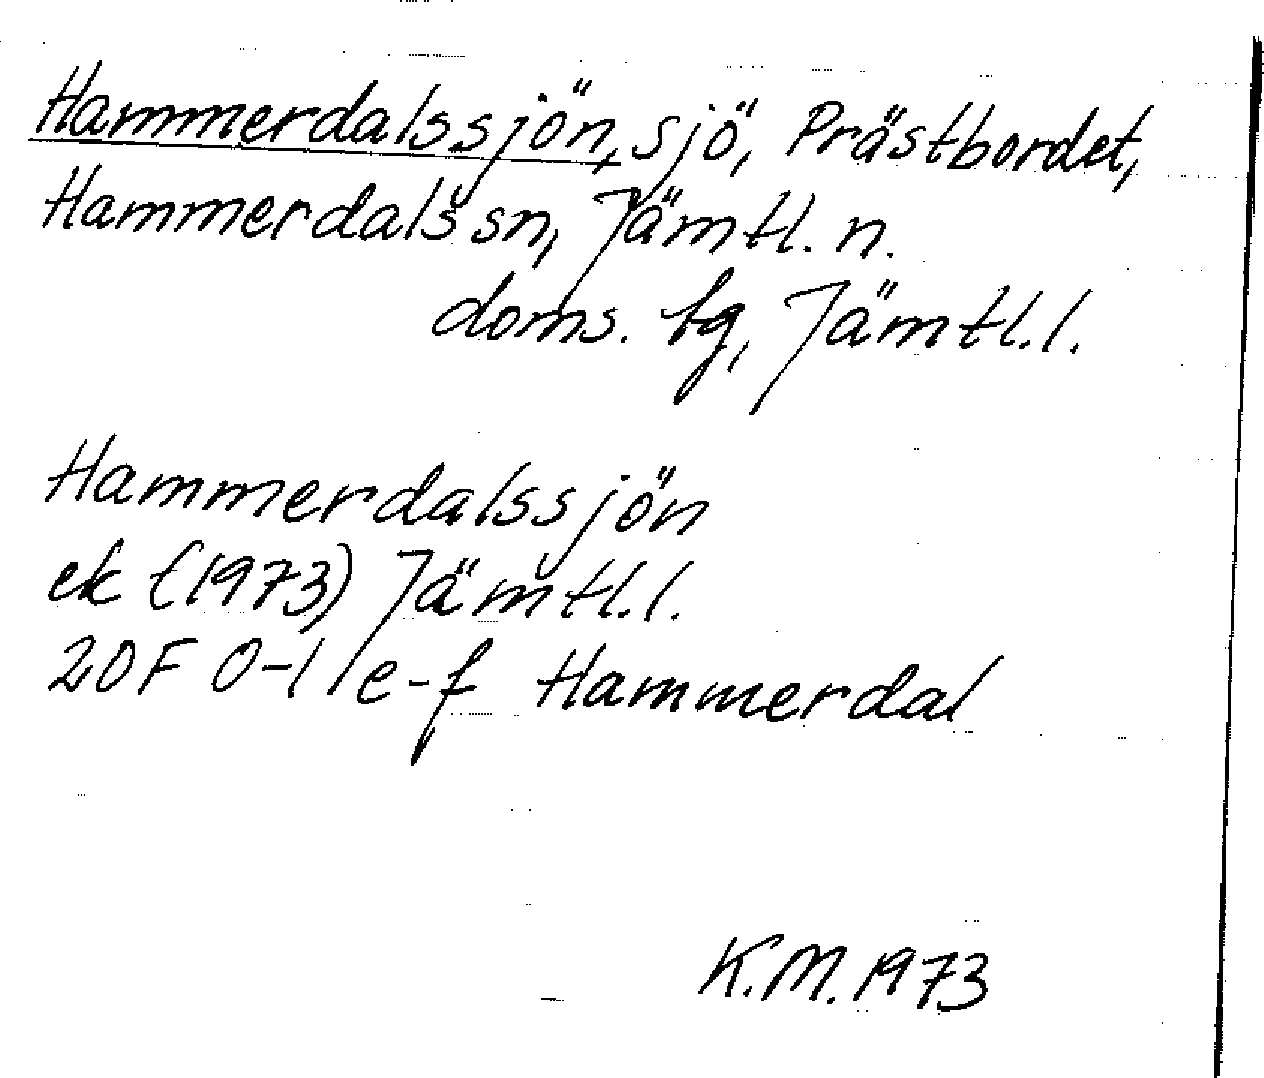 Hammerdalssjön, sjö, Prästbordet,
Hammerdals sn, Jämtl. n.
doms. tg, Jämtl. l.
Hammerdalssjön
ek (1973) Jämtl. l.
20F 0-1 e-f Hammerdal
K.M. 1973